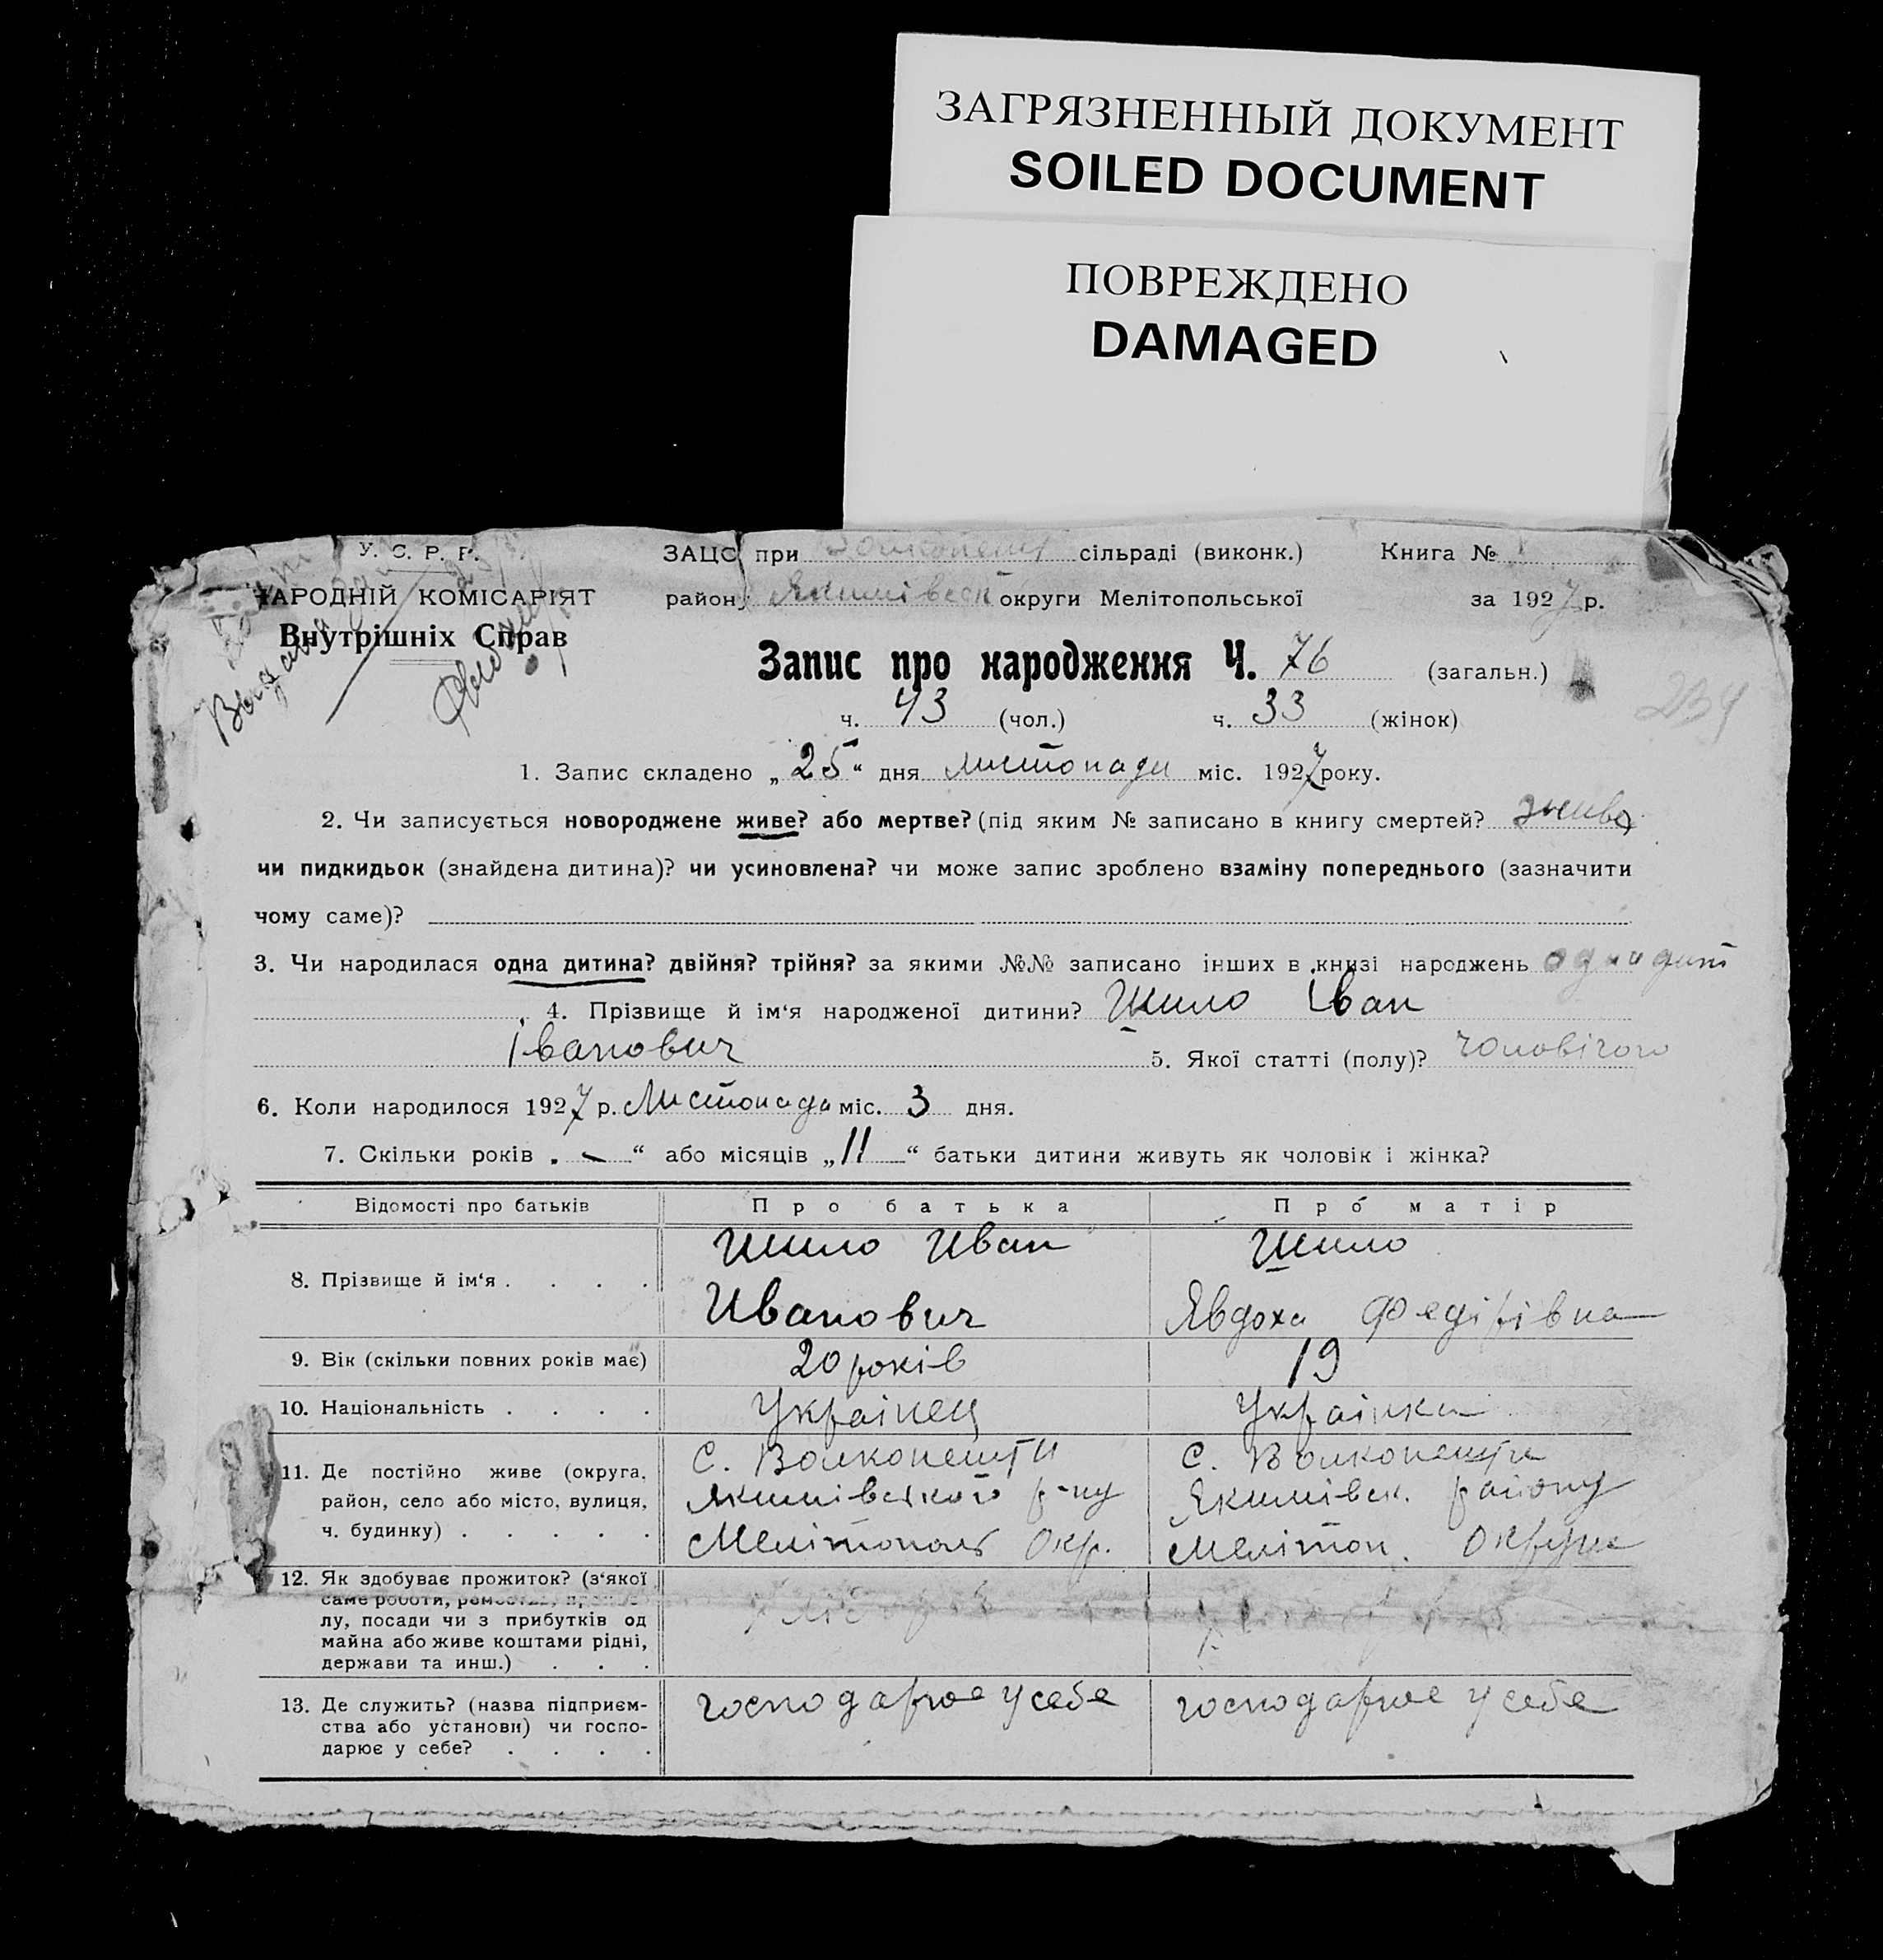 ЗАГРЯЗНЕННЫЙ ДОКУМЕНТ
SOILED DOCUMENT
ПОВРЕЖДЕНО
DAMAGED
У. С. Р. Р.
НАРОДНІЙ КОМІСАРІЯТ
Внутрішніх Справ
Видана
ЗАЦС при сільраді (виконк.) Книга №
району Якимівськ округи Мелітопольської за 1927 р.
Запис про народження Ч. 76 (загальн.)
239
ч. 43 (чол.) ч. 33 (жінок)
1. Запис складено „25“ дня листопади міс. 1927 року.
2. Чи записується новороджене живе? або мертве? (під яким № записано в книгу смертей? живо
чи пидкидьок (знайдена дитина)? чи усиновлена? чи може запис зроблено взаміну попереднього (зазначити
чому саме)?
3. Чи народилася одна дитина? двійня? трійня? за якими №№ записано інших в книзі народжень одна дит
4. Прізвище й ім‘я народженої дитини? Шило Іван
Іванович 5. Якої статті (полу)? чоловічого
6. Коли народилося 1927 р. Листопада міс. 3 дня.
7. Скільки років „ — “ або місяців „11“ батьки дитини живуть як чоловік і жінка?
Відомості про батьків Про батька Про матір
8. Прізвище й ім‘я . . . . Шило Иван Шило
Иванович Явдоха Федірівна
9. Вік (скільки повних років має) 20 років 19
10. Національність . . . . Українец Українка
11. Де постійно живе (округа, С. Волконешти С. Волконешти
район, село або місто, вулиця, Якимівського р-ну Якимівск. району
ч. будинку) . . . . . Мелітополь Окр. Мелітоп. Округи
12. Як здобуває прожиток? (з‘якої
саме роботи,
лу, посади чи з прибутків од
майна або живе коштами рідні,
держави та инш.) . . .
13. Де служить? (назва підприєм- господарює у себе господарює у себе
ства або установи) чи госпо-
дарює у себе? . . . .